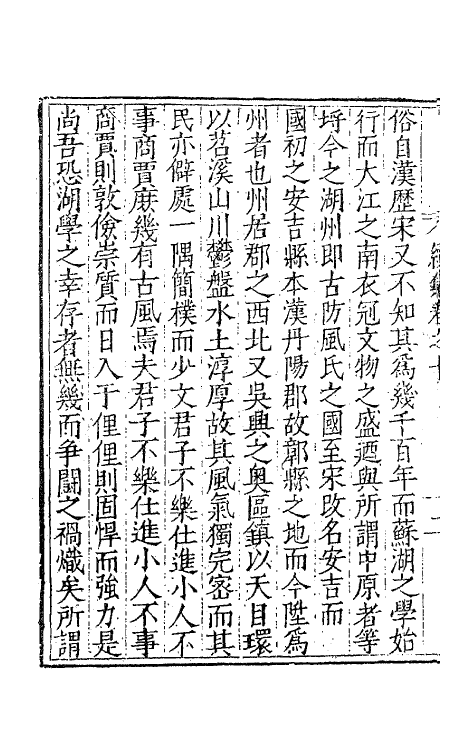 俗自漢歷宋又不知其爲幾千百年而蘇湖之學始
行而大江之南衣冠文物之盛遒與所謂中原者等
埒今之湖州即古防風氏之國至宋改名安吉而
國初之安吉縣本漢丹陽郡故鄣縣之地而今陞爲
州者也州居郡之西北又吳興之奥區鎮以天目環
以苕溪山川鬱盤水土淳厚故其風氣獨完宻而其
民亦僻處一隅簡樸而少文君子不樂仕進小人不
事商賈庶幾有古風焉夫君子不樂仕進小人不事
商賈則敦儉崇質而日入于俚俚則固悍而強力是
尚吾恐湖學之幸存者無幾而争鬬之禍熾矣所謂